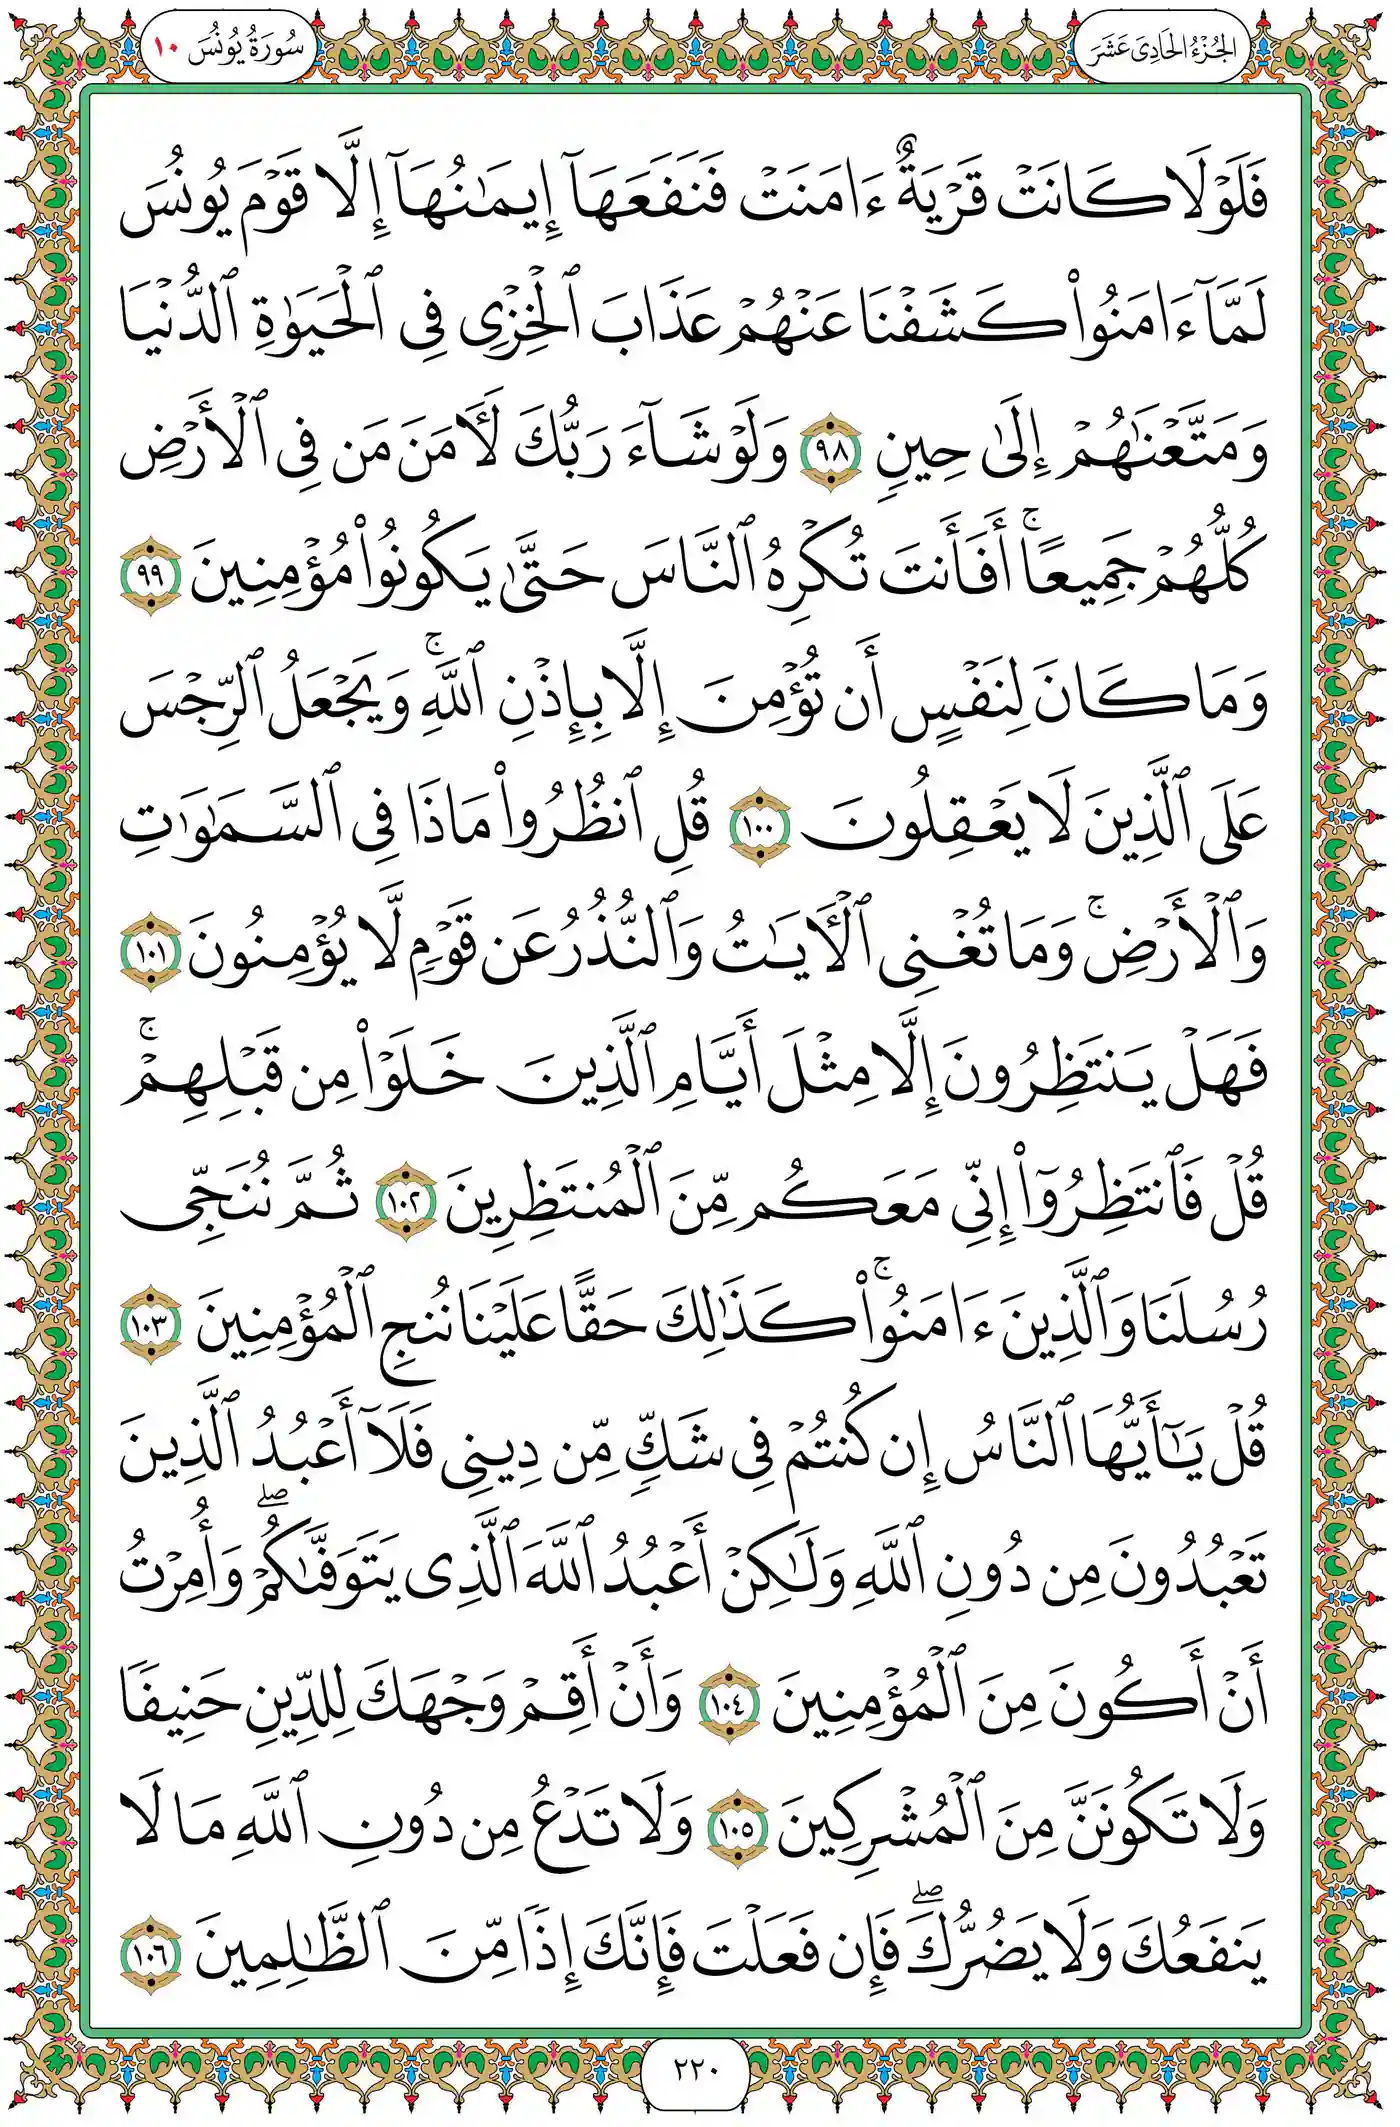 الجُزْءُ الحَادِىَ عَشَرَ
سُورَةُ يُونُسَ ١٠
فَلَوْلَا كَانَتْ قَرْيَةٌ ءَامَنَتْ فَنَفَعَهَآ إِيمَٰنُهَآ إِلَّا قَوْمَ يُونُسَ
لَمَّآ ءَامَنُوا۟ كَشَفْنَا عَنْهُمْ عَذَابَ ٱلْخِزْىِ فِى ٱلْحَيَوٰةِ ٱلدُّنْيَا
وَمَتَّعْنَٰهُمْ إِلَىٰ حِينٍ ٩٨ وَلَوْ شَآءَ رَبُّكَ لَـَٔامَنَ مَن فِى ٱلْأَرْضِ
كُلُّهُمْ جَمِيعًا ۚ أَفَأَنتَ تُكْرِهُ ٱلنَّاسَ حَتَّىٰ يَكُونُوا۟ مُؤْمِنِينَ ٩٩
وَمَا كَانَ لِنَفْسٍ أَن تُؤْمِنَ إِلَّا بِإِذْنِ ٱللَّهِ ۚ وَيَجْعَلُ ٱلرِّجْسَ
عَلَى ٱلَّذِينَ لَا يَعْقِلُونَ ١٠٠ قُلِ ٱنظُرُوا۟ مَاذَا فِى ٱلسَّمَٰوَٰتِ
وَٱلْأَرْضِ ۚ وَمَا تُغْنِى ٱلْـَٔايَٰتُ وَٱلنُّذُرُ عَن قَوْمٍ لَّا يُؤْمِنُونَ ١٠١
فَهَلْ يَنتَظِرُونَ إِلَّا مِثْلَ أَيَّامِ ٱلَّذِينَ خَلَوْا۟ مِن قَبْلِهِمْ ۚ
قُلْ فَٱنتَظِرُوٓا۟ إِنِّى مَعَكُم مِّنَ ٱلْمُنتَظِرِينَ ١٠٢ ثُمَّ نُنَجِّى
رُسُلَنَا وَٱلَّذِينَ ءَامَنُوا۟ ۚ كَذَٰلِكَ حَقًّا عَلَيْنَا نُنجِ ٱلْمُؤْمِنِينَ ١٠٣
قُلْ يَٰٓأَيُّهَا ٱلنَّاسُ إِن كُنتُمْ فِى شَكٍّ مِّن دِينِى فَلَآ أَعْبُدُ ٱلَّذِينَ
تَعْبُدُونَ مِن دُونِ ٱللَّهِ وَلَٰكِنْ أَعْبُدُ ٱللَّهَ ٱلَّذِى يَتَوَفَّىٰكُمْ ۖ وَأُمِرْتُ
أَنْ أَكُونَ مِنَ ٱلْمُؤْمِنِينَ ١٠٤ وَأَنْ أَقِمْ وَجْهَكَ لِلدِّينِ حَنِيفًا
وَلَا تَكُونَنَّ مِنَ ٱلْمُشْرِكِينَ ١٠٥ وَلَا تَدْعُ مِن دُونِ ٱللَّهِ مَا لَا
يَنفَعُكَ وَلَا يَضُرُّكَ ۖ فَإِن فَعَلْتَ فَإِنَّكَ إِذًا مِّنَ ٱلظَّٰلِمِينَ ١٠٦
٢٢٠